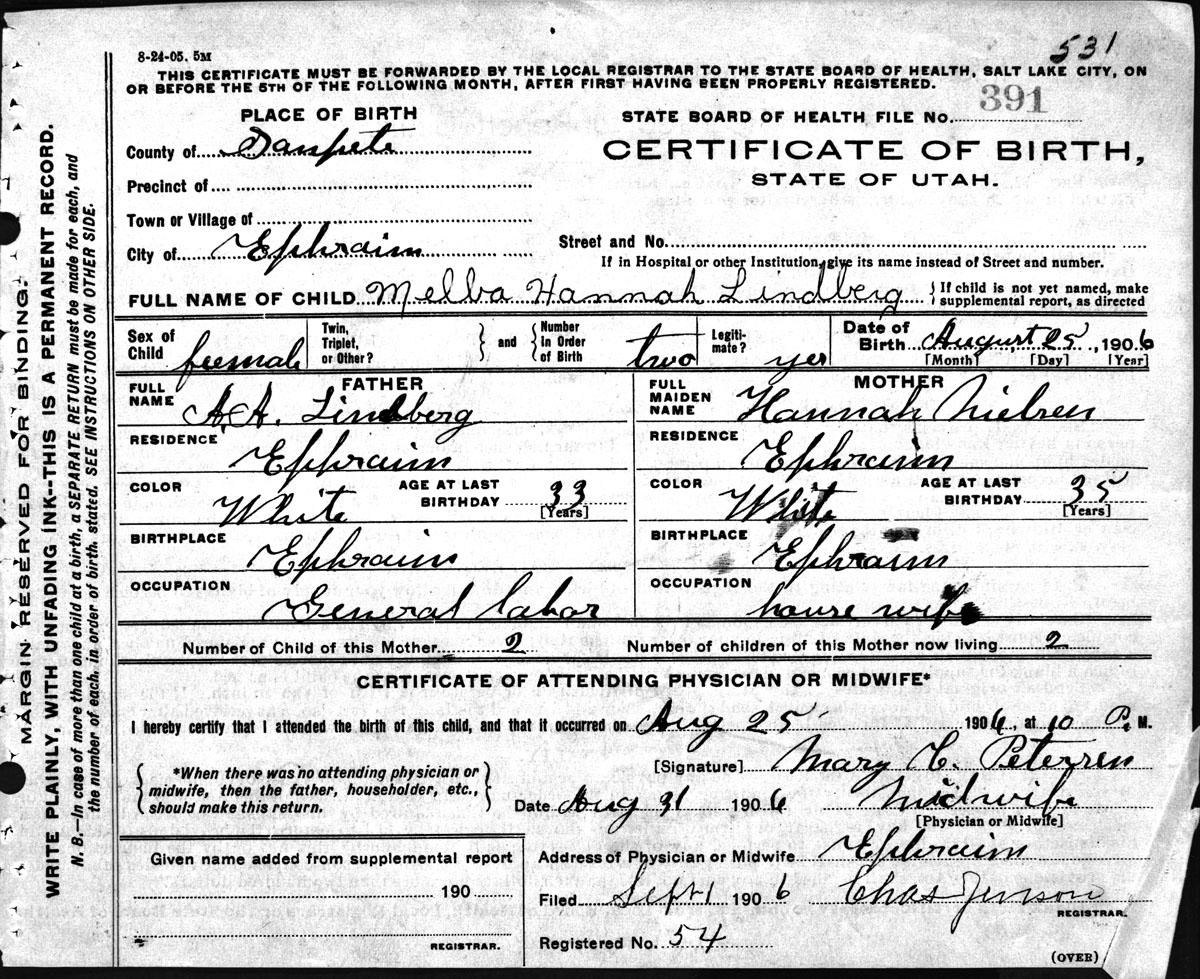 531
8-24-05. 5M
THIS CERTIFICATE MUST BE FORWARDED BY THE LOCAL REGISTRAR TO THE STATE BOARD OF HEALTH, SALT LAKE CITY, ON
OR BEFORE THE 5TH OF THE FOLLOWING MONTH, AFTER FIRST HAVING BEEN PROPERLY REGISTERED.
391
PLACE OF BIRTH
STATE BOARD OF HEALTH FILE No.
County of Sanpete
CERTIFICATE OF BIRTH,
STATE OF UTAH.
Precinct of
Town or Village of
City of Ephraim
Street and No.
If in Hospital or other Institution, give its name instead of Street and number.
FULL NAME OF CHILD Melba Hannah Lindberg { If child is not yet named, make
supplemental report, as directed
Sex of Child female Twin, Triplet, or Other? } and { Number in Order of Birth two Legiti-mate? yes Date of Birth August 25, 1906
[Month] [Day] [Year]
FATHER
FULL NAME A. A. Lindberg
RESIDENCE Ephraim
COLOR White AGE AT LAST BIRTHDAY 33 [Years]
BIRTHPLACE Ephraim
OCCUPATION General labor
MOTHER
FULL MAIDEN NAME Hannah Nielsen
RESIDENCE Ephraim
COLOR White AGE AT LAST BIRTHDAY 35 [Years]
BIRTHPLACE Ephraim
OCCUPATION house wife
Number of Child of this Mother 2 Number of children of this Mother now living 2
CERTIFICATE OF ATTENDING PHYSICIAN OR MIDWIFE*
I hereby certify that I attended the birth of this child, and that it occurred on Aug 25 1906, at 10 P. M.
{ *When there was no attending physician or
midwife, then the father, householder, etc.,
should make this return. }
[Signature] Mary C. Petersen
Date Aug 31 1906 Midwife
[Physician or Midwife]
Given name added from supplemental report
190
REGISTRAR.
Address of Physician or Midwife Ephraim
Filed Sept 1 1906 Chas Jenson
REGISTRAR.
Registered No. 54
(OVER)
MARGIN RESERVED FOR BINDING.
WRITE PLAINLY, WITH UNFADING INK--THIS IS A PERMANENT RECORD.
N. B.—In case of more than one child at a birth, a SEPARATE RETURN must be made for each, and
the number of each, in order of birth, stated. SEE INSTRUCTIONS ON OTHER SIDE.